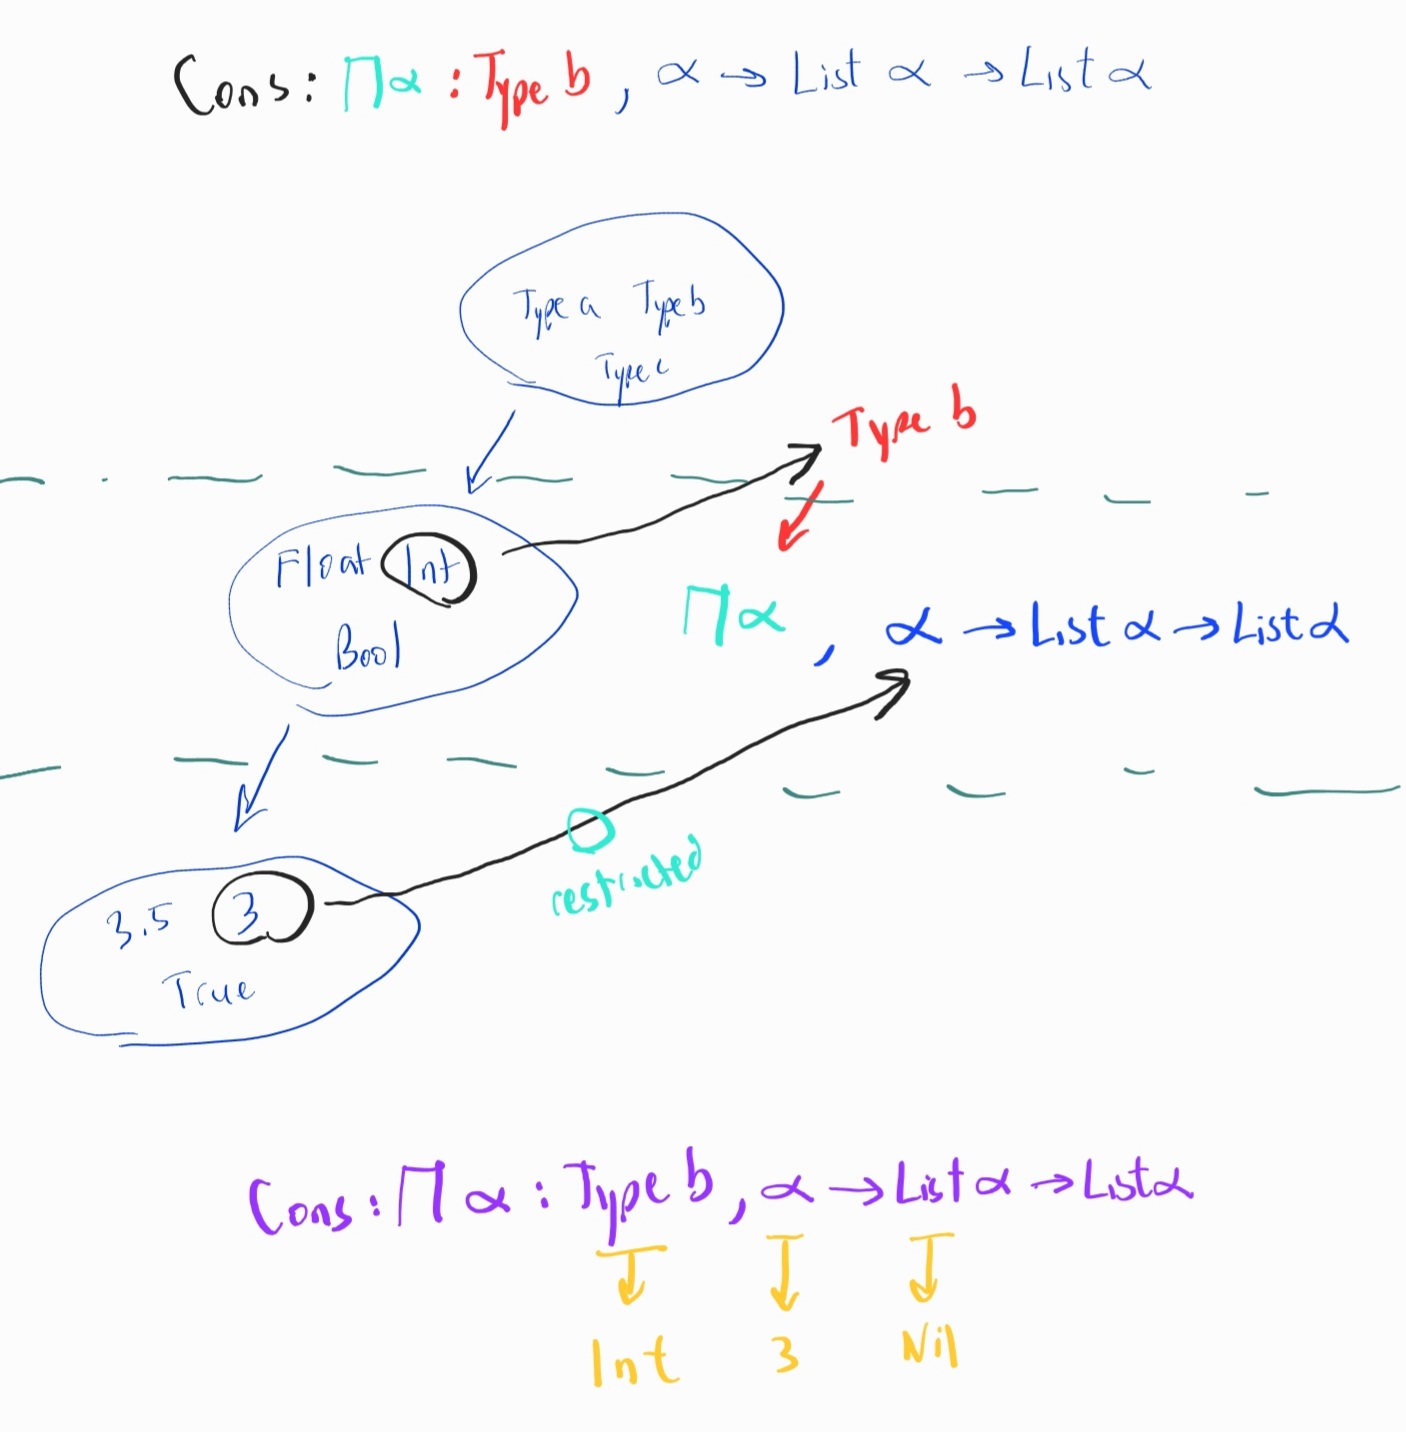 Cons: Πα : Type b, α → List α → List α
Type a Type b
Type c
Type b
Float Int
Πα, α → List α → List α
Bool
restricted
3.5 3
True
Cons: Π α : Type b, α → List α → List α
Int 3 Nil